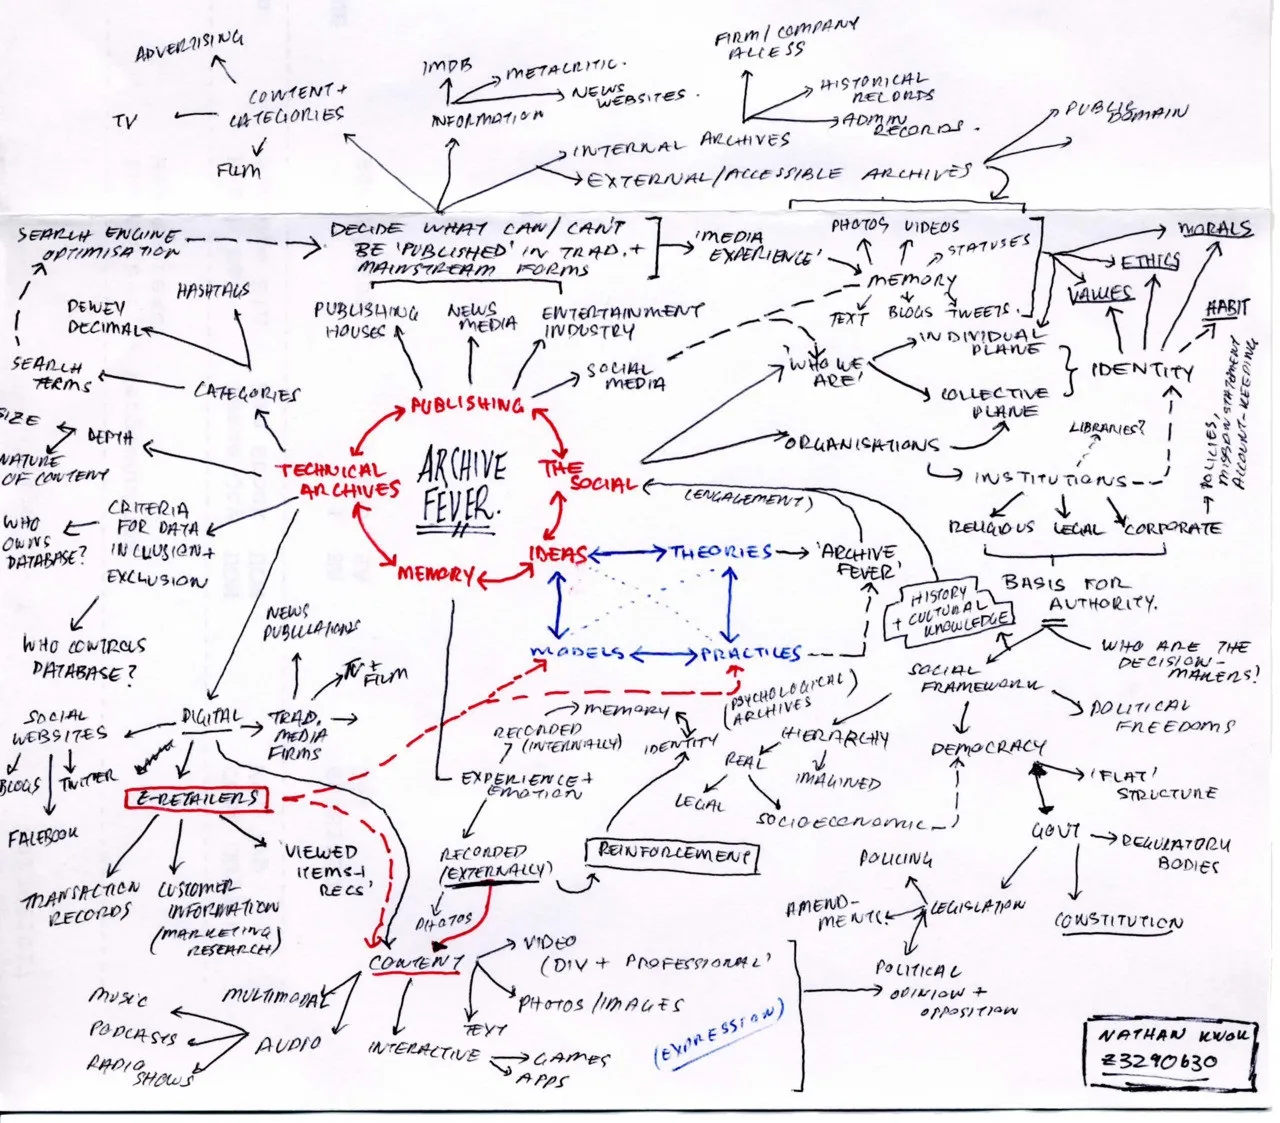 ADVERTISING
CONTENT +
CATEGORIES
TV
FILM
IMDB
METACRITIC.
NEWS
WEBSITES.
INFORMATION
FIRM/COMPANY
ACCESS
HISTORICAL
RECORDS
ADMIN
RECORDS.
INTERNAL ARCHIVES
EXTERNAL/ACCESSIBLE ARCHIVES
PUBLIC
DOMAIN
SEARCH ENGINE
OPTIMISATION
DECIDE WHAT CAN/CAN'T
BE 'PUBLISHED' IN TRAD. +
MAINSTREAM FORMS
'MEDIA
EXPERIENCE'
PHOTOS VIDEOS
STATUSES
MEMORY
TEXT BLOGS TWEETS.
MORALS
ETHICS
VALUES
HABIT
IDENTITY
HASHTAGS
DEWEY
DECIMAL
SEARCH
TERMS
CATEGORIES
PUBLISHING
HOUSES
NEWS
MEDIA
ENTERTAINMENT
INDUSTRY
SOCIAL
MEDIA
'WHO WE
ARE'
INDIVIDUAL
PLANE
COLLECTIVE
PLANE
ORGANISATIONS
LIBRARIES?
INSTITUTIONS
RELIGIOUS LEGAL CORPORATE
POLICIES,
MISSION STATEMENT
ACCOUNT-KEEPING
SIZE
DEPTH
NATURE
OF CONTENT
PUBLISHING
TECHNICAL
ARCHIVES
ARCHIVE
FEVER.
THE
SOCIAL
MEMORY
IDEAS
THEORIES
MODELS
PRACTICES
(ENGAGEMENT)
'ARCHIVE
FEVER'
HISTORY
+ CULTURAL
KNOWLEDGE
BASIS FOR
AUTHORITY.
WHO ARE THE
DECISION-
MAKERS?
CRITERIA
FOR DATA
INCLUSION +
EXCLUSION
WHO
OWNS
DATABASE?
WHO CONTROLS
DATABASE?
NEWS
PUBLICATIONS
TV +
FILM
DIGITAL
TRAD.
MEDIA
FIRMS
SOCIAL
WEBSITES
BLOGS
TWITTER
FACEBOOK
E-RETAILERS
TRANSACTION
RECORDS
CUSTOMER
INFORMATION
(MARKETING
RESEARCH)
'VIEWED
ITEMS +
RECS'
(PSYCHOLOGICAL)
ARCHIVES
MEMORY
RECORDED
(INTERNALLY)
IDENTITY
EXPERIENCE +
EMOTION
RECORDED
(EXTERNALLY)
PHOTOS
REINFORCEMENT
SOCIAL
FRAMEWORK
HIERARCHY
REAL
IMAGINED
LEGAL
SOCIOECONOMIC
DEMOCRACY
POLITICAL
FREEDOMS
'FLAT'
STRUCTURE
GOVT
REGULATORY
BODIES
CONSTITUTION
LEGISLATION
POLICING
AMEND-
MENTS
POLITICAL
OPINION +
OPPOSITION
CONTENT
VIDEO
(DIV + PROFESSIONAL)
PHOTOS/IMAGES
TEXT
INTERACTIVE
GAMES
APPS
MULTIMODAL
AUDIO
MUSIC
PODCASTS
RADIO
SHOWS
(EXPRESSION)
NATHAN KWOK
Z3290630